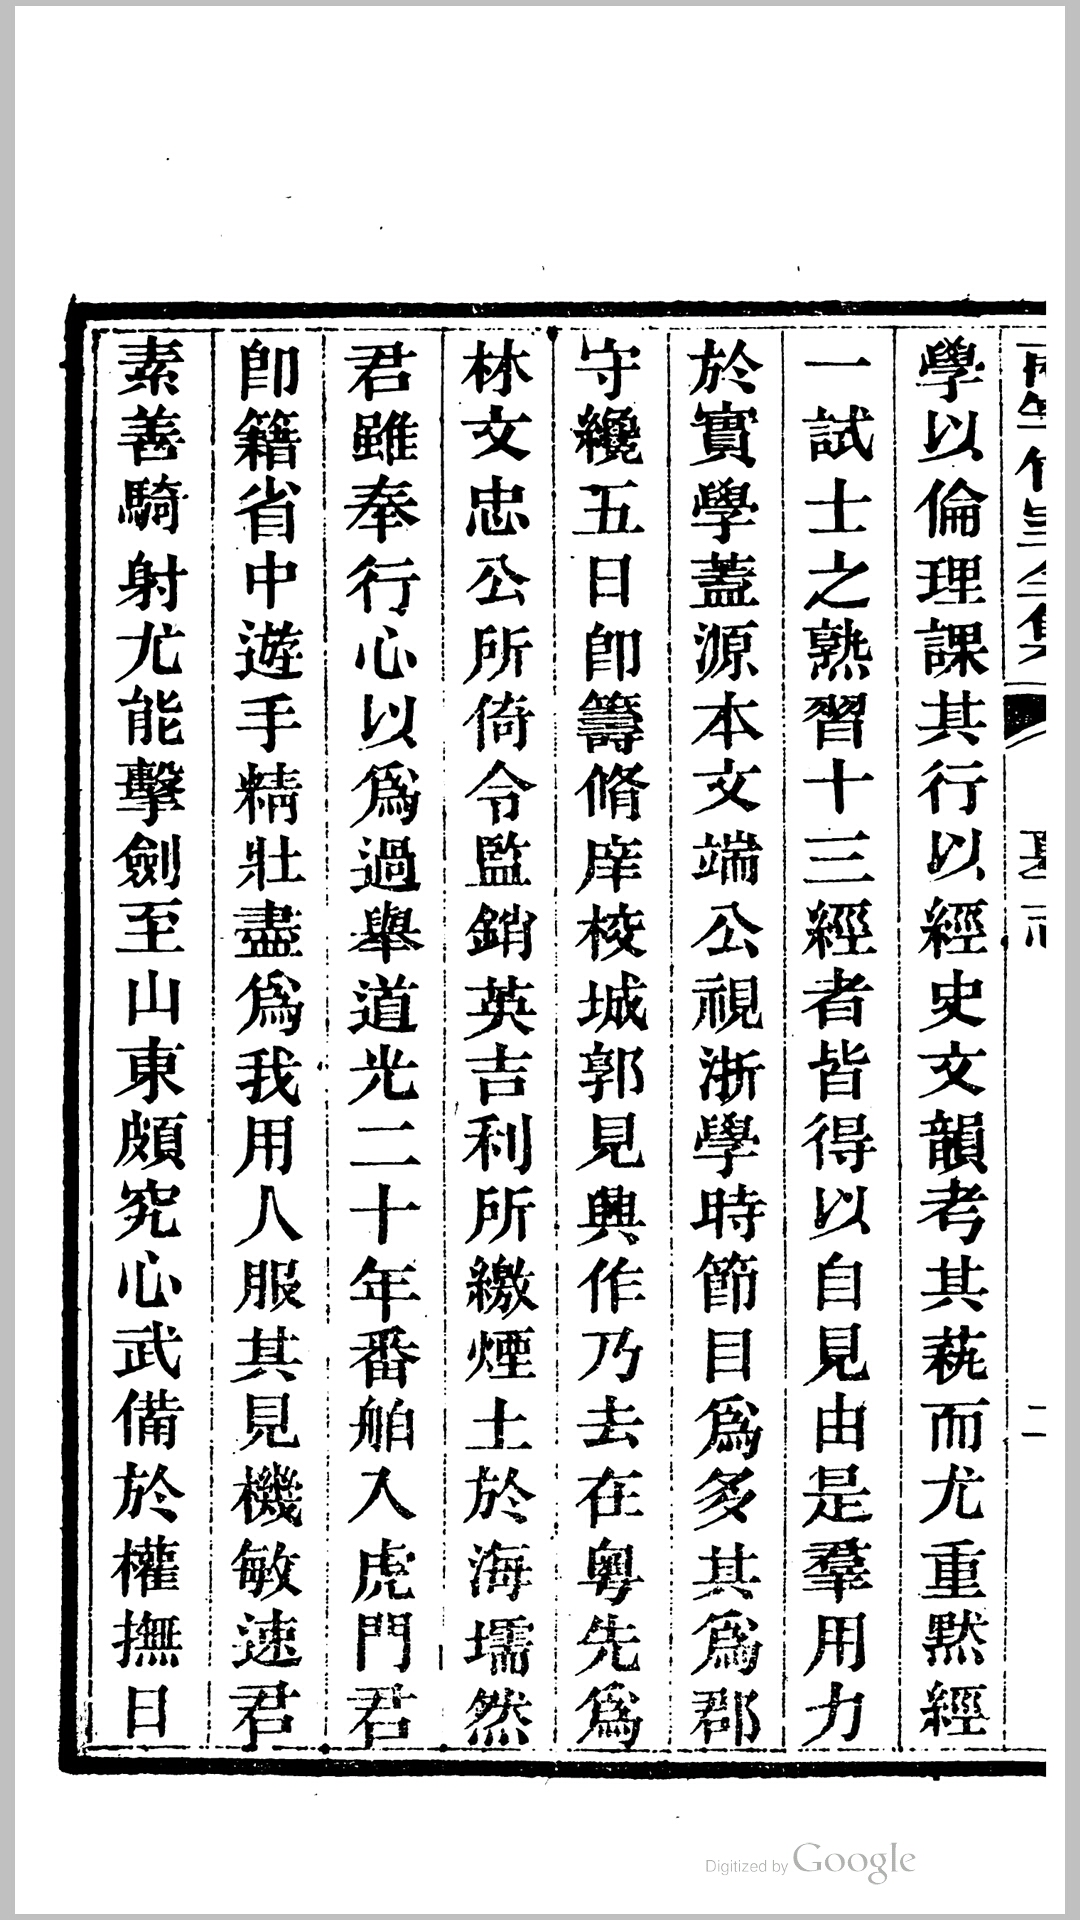 學以倫理課其行以經史文韻考其蓺而尤重默經
一試士之熟習十三經者皆得以自見由是羣用力
於實學蓋源本文端公視浙學時節目爲多其爲郡
守纔五日卽籌脩庠校城郭見興作乃去在粵先爲
林文忠公所倚令監銷英吉利所繳煙土於海壖然
君雖奉行心以爲過舉道光二十年番舶入虎門君
卽籍省中遊手精壯盡爲我用人服其見機敏速君
素善騎射尤能擊劍至山東頗究心武備於權撫日
Digitized by Google